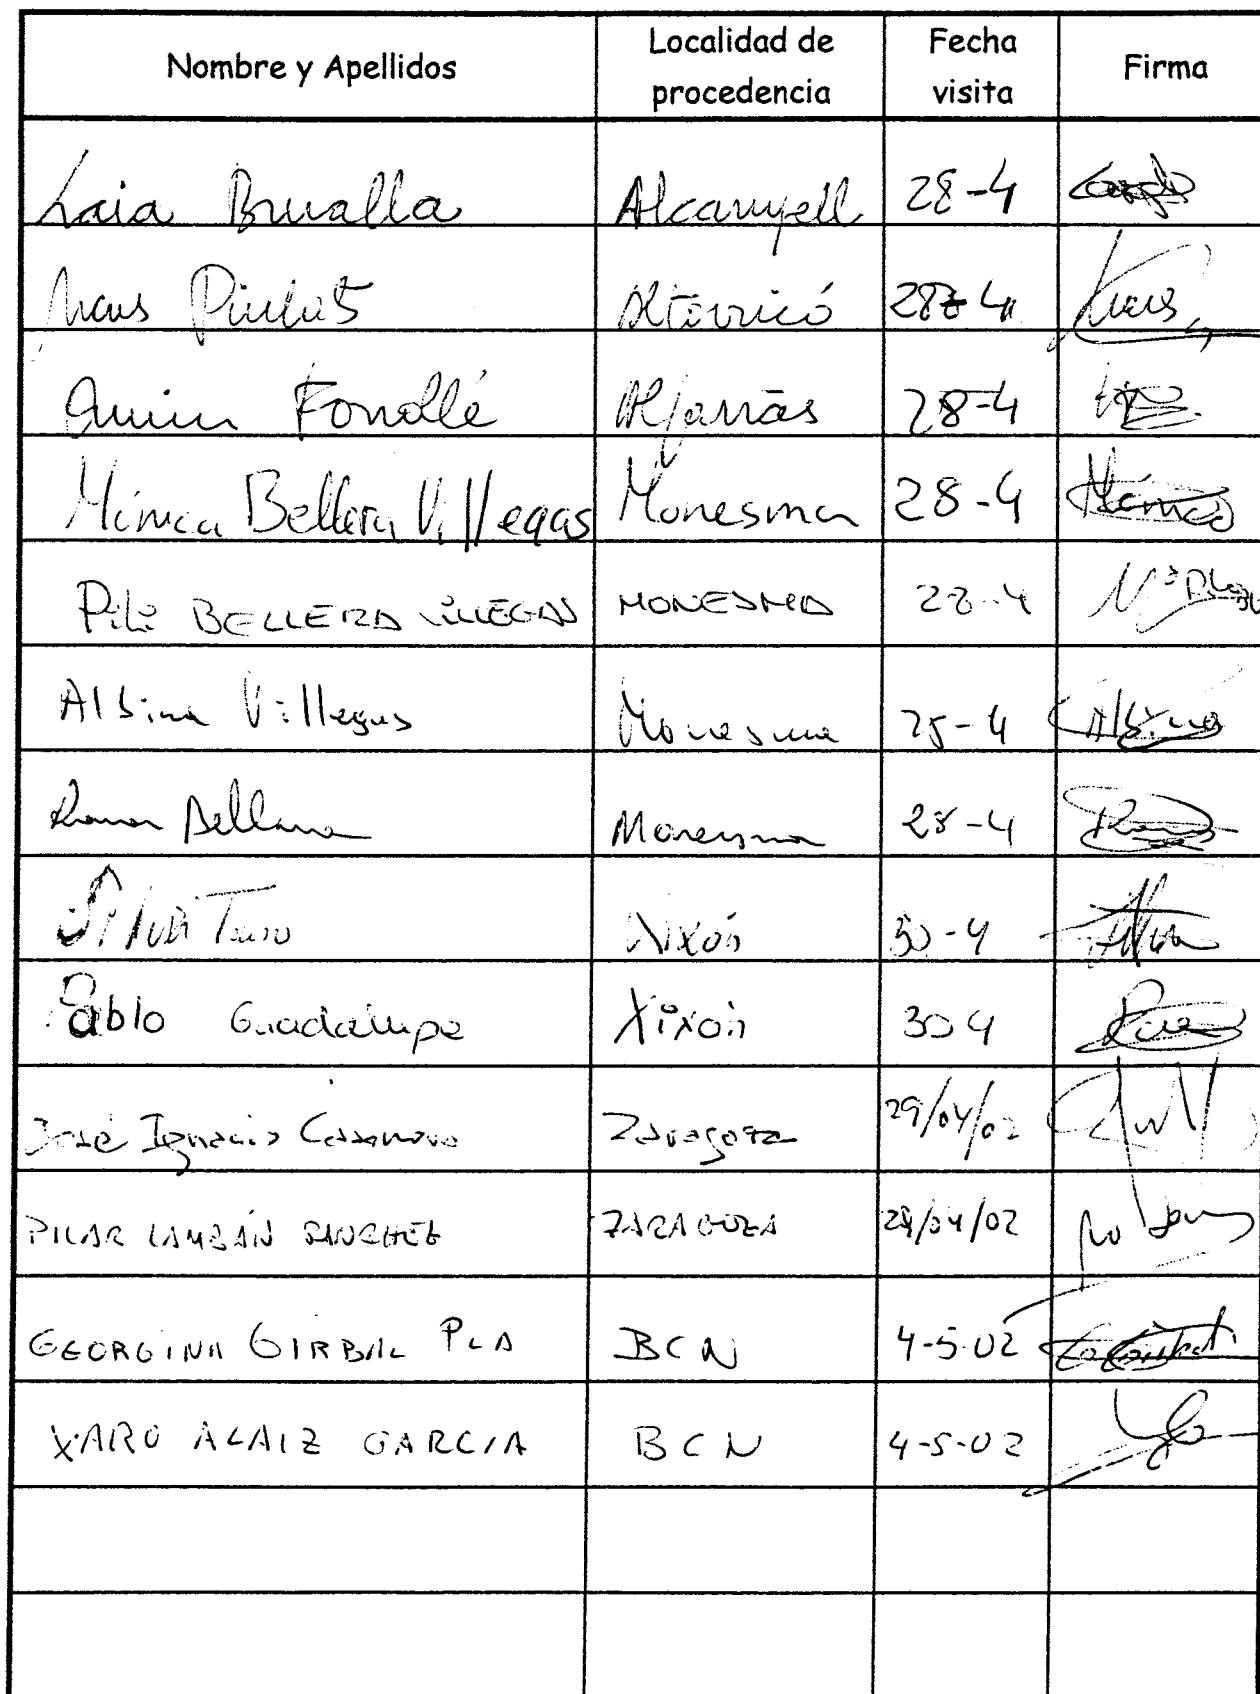 Nombre y Apellidos Localidad de procedencia Fecha visita Firma
Laia Brualla Alcampell 28-4
Altorricó 28-4
Quim Fondlé Alfarràs 28-4
Mónica Bellera Villegas Monesma 28-4 Mónica
Pili BELLERA VILLEGAS MONESMA 28-4
Albina Villegas Monesma 28-4 Albina
Ramon Bellera Monesma 28-4
Xixón 30-4
Pablo Guadalupe Xixón 30 4
José Ignacio Casanova Zaragoza 29/04/02
PILAR LAMBÁN SANCHEZ ZARAGOZA 29/04/02
GEORGINA GIRBAL PLA BCN 4-5-02
XARO ALAIZ GARCIA BCN 4-5-02